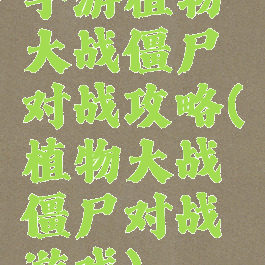 手游植物
大战僵尸
对战攻略(
植物大战
僵尸对战
游戏)